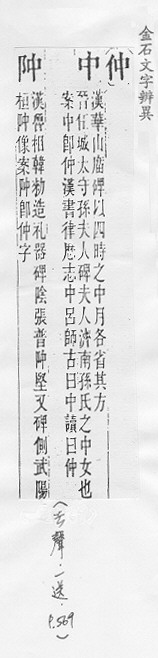 金石文字辨異
(仲)
中 漢華山廟碑以四時之中月各省其方
晉任城太守孫夫人碑夫人濟南孫氏之中女也
案中即仲漢書律歷志中呂師古曰中讀曰仲
𨸬 漢魯相韓勑造礼器碑陰張普𨸬堅又碑側武陽
桓𨸬像案𨸬即仲字
(去聲·一送·P.569)